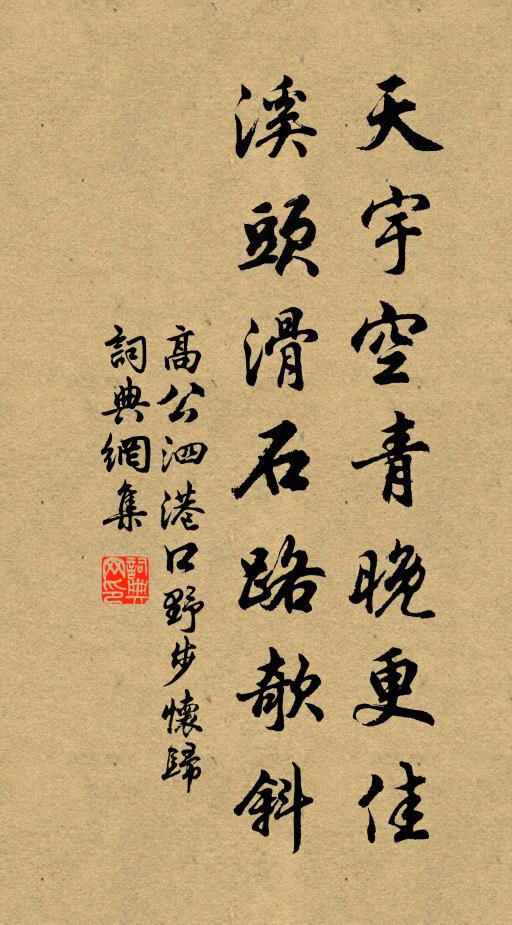 天宇空青晚更佳
溪頭滑石路欹斜
高公泗港口野步懷歸
詞典網集
詞典網印